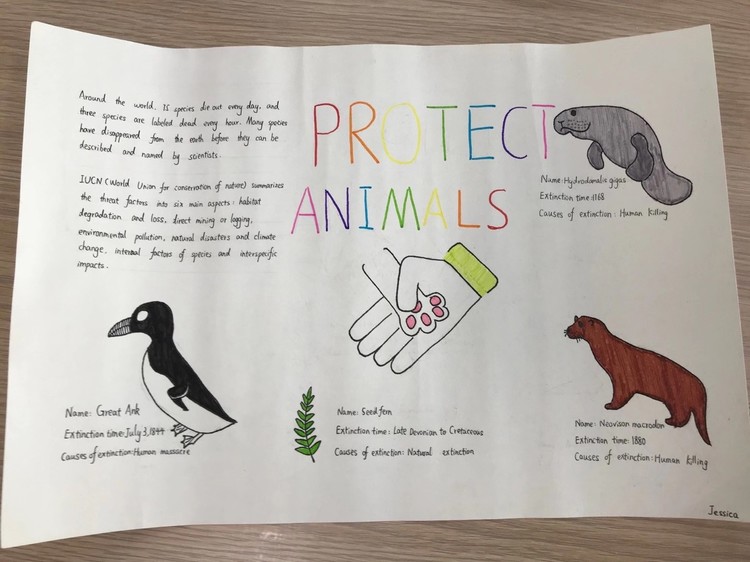 PROTECT
ANIMALS
Around the world, 75 species die out every day, and
three species are labeled dead every hour. Many species
have disappeared from the earth before they can be
described and named by scientists.
IUCN (World Union for conservation of nature) summarizes
the threat factors into six main aspects: habitat
degradation and loss, direct mining or logging,
environmental pollution, natural disasters and climate
change, internal factors of species and interspecific
impacts.
Name: Hydrodamalis gigas
Extinction time: 1768
Causes of extinction: Human killing
Name: Great Auk
Extinction time: July 3, 1844
Causes of extinction: Human massacre
Name: Seed fern
Extinction time: Late Devonian to Cretaceous
Causes of extinction: Natural extinction
Name: Neovison macrodon
Extinction time: 1880
Causes of extinction: Human killing
Jessica